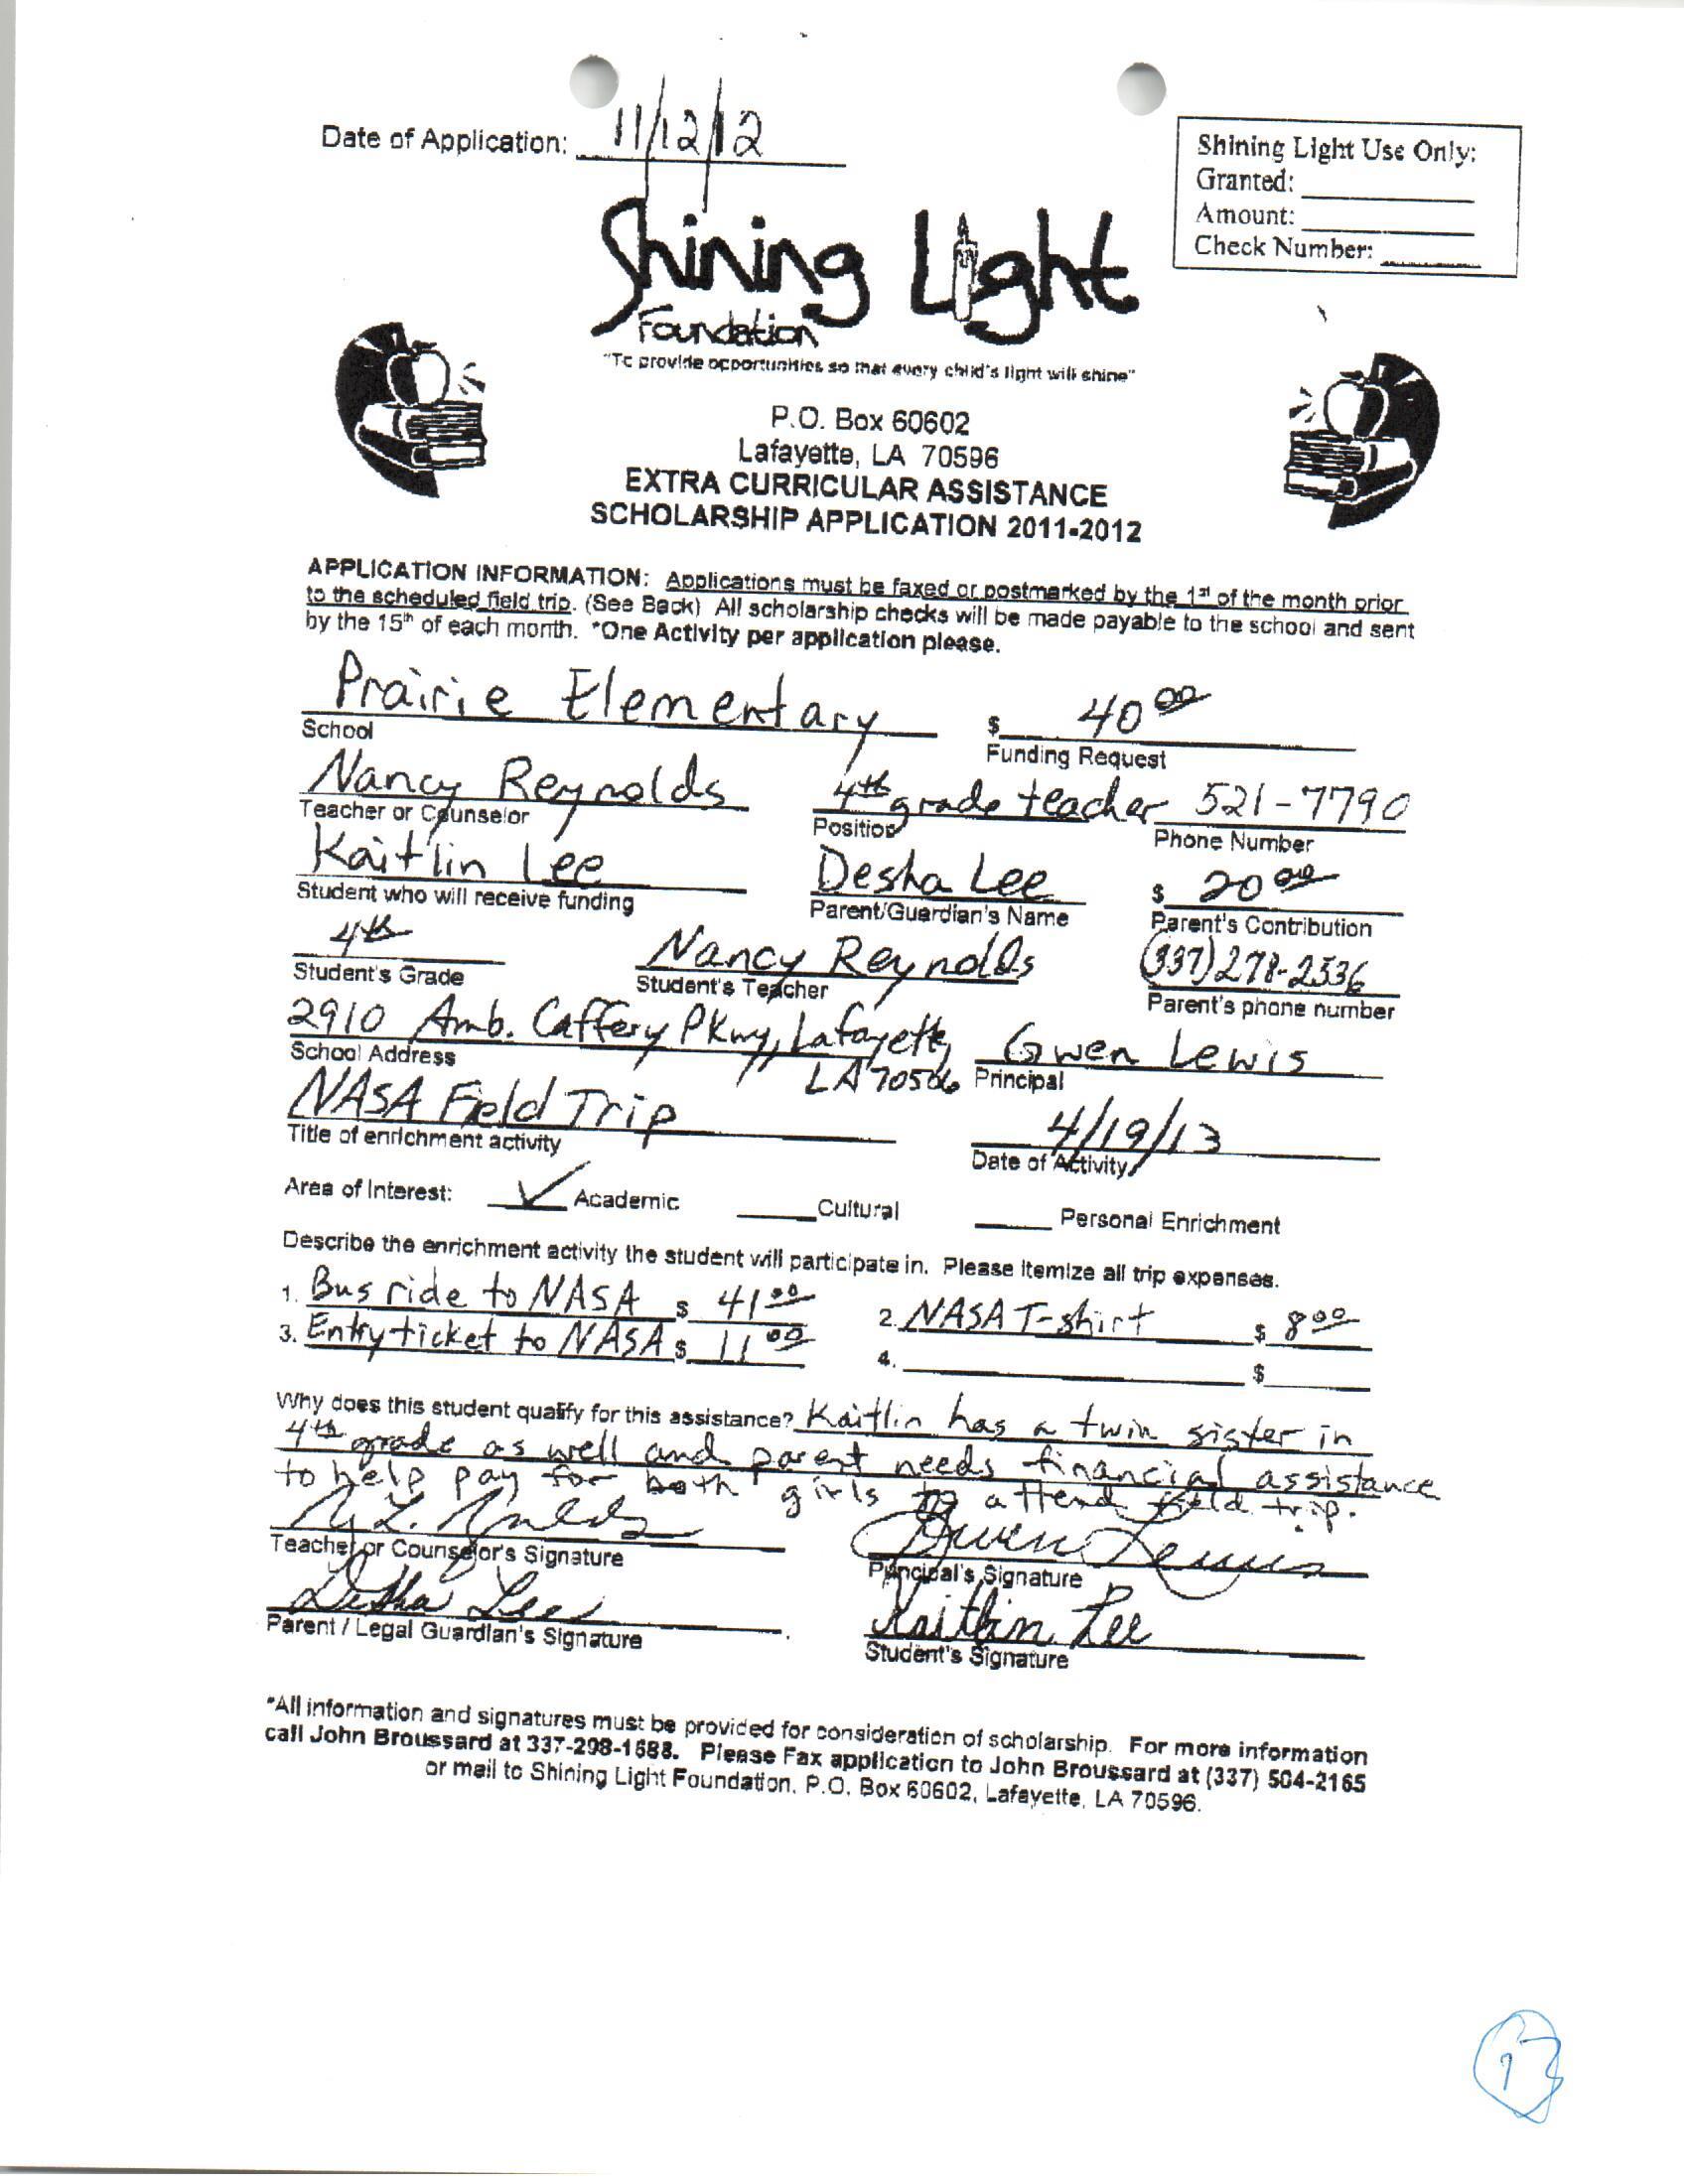 Date of Application: 11/12/12
Shining Light Use Only:
Granted:
Amount:
Check Number:
Shining Light
Foundation
"To provide opportunities so that every child's light will shine"
P.O. Box 60602
Lafayette, LA 70596
EXTRA CURRICULAR ASSISTANCE
SCHOLARSHIP APPLICATION 2011-2012
APPLICATION INFORMATION: Applications must be faxed or postmarked by the 1st of the month prior
to the scheduled field trip. (See Back) All scholarship checks will be made payable to the school and sent
by the 15th of each month. *One Activity per application please.
Prairie Elementary $ 40 00
School Funding Request
Nancy Reynolds 4th grade teacher 521-7790
Teacher or Counselor Position Phone Number
Kaitlin Lee Desha Lee $ 20 00
Student who will receive funding Parent/Guardian's Name Parent's Contribution
4th Nancy Reynolds (337) 278-2536
Student's Grade Student's Teacher Parent's phone number
2910 Amb. Caffery Pkwy, Lafayette, Gwen Lewis
School Address LA 70506 Principal
NASA Field Trip 4/19/13
Title of enrichment activity Date of Activity
Area of Interest: ✓ Academic Cultural Personal Enrichment
Describe the enrichment activity the student will participate in. Please itemize all trip expenses.
1. Bus ride to NASA $ 41 00 2. NASA T-shirt $ 8 00
3. Entry ticket to NASA $ 11 00 4. $
Why does this student qualify for this assistance? Kaitlin has a twin sister in
4th grade as well and parent needs financial assistance
to help pay for both girls to attend field trip.
Teacher or Counselor's Signature Gwen Lewis
Principal's Signature
Desha Lee Kaitlin Lee
Parent / Legal Guardian's Signature Student's Signature
*All information and signatures must be provided for consideration of scholarship. For more information
call John Broussard at 337-298-1688. Please Fax application to John Broussard at (337) 504-2165
or mail to Shining Light Foundation, P.O. Box 60602, Lafayette, LA 70596.